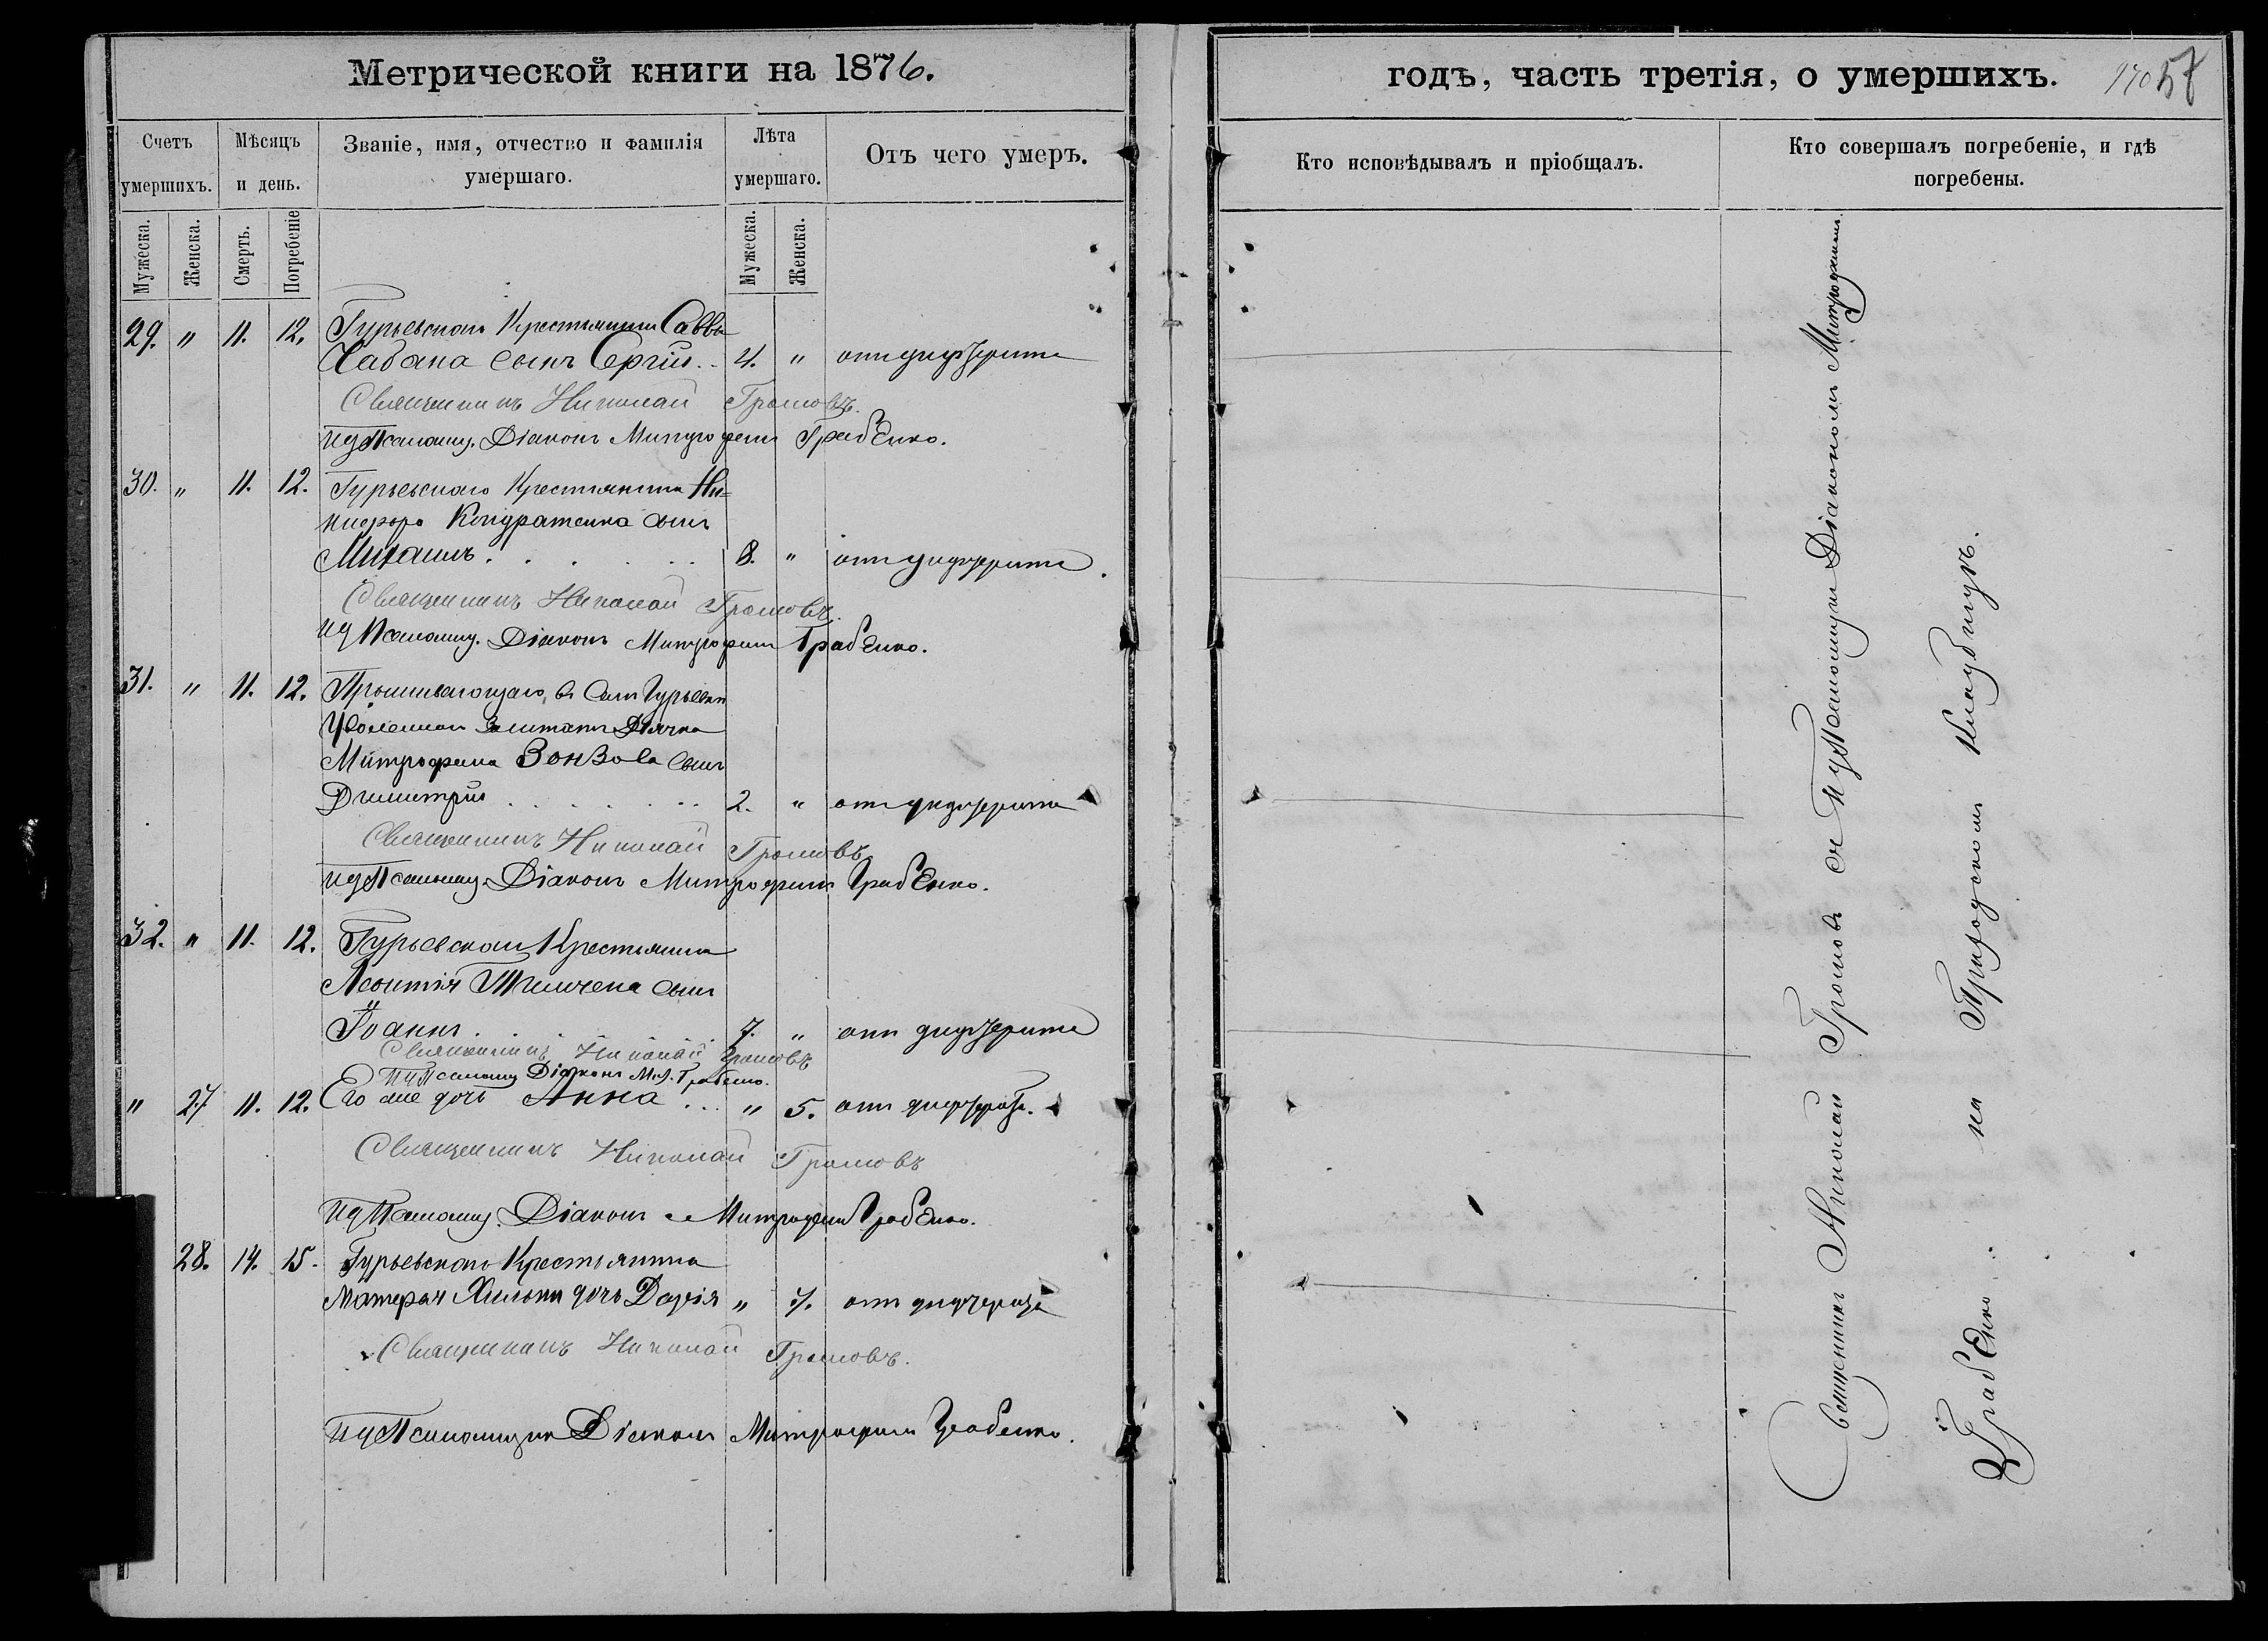 Метрической книги на 1876.
Счетъ умершихъ.
Мѣсяцъ и день.
Званіе, имя, отчество и фамилія умершаго.
Лѣта умершаго.
Отъ чего умеръ.
Мужеска. Женска. Смерть. Погребеніе Мужеска. Женска.
29. " 11. 12. Гурьевскаго Крестьянина Саввы
Чабана сынъ Сергій.. 4. " отъ дифтерита
Священникъ Николай Громовъ.
ид Псаломщ. Діаконъ Митрофанъ Грабенко.
30. " 11. 12. Гурьевскаго Крестьянина Ни=
кифора Кондратенка сынъ
Михаилъ. . . . . . . 8. " отъ дифтерита.
Священникъ Николай Громовъ.
ид Псаломщ. Діаконъ Митрофанъ Грабенко.
31. " 11. 12. Проживающаго въ Селѣ Гурьевкѣ
Уволеннаго Заштатъ Дьячка
Митрофана Вонзова сынъ
Димитрій . . . . . . . . 2. " отъ дифтерита
Священникъ Николай Громовъ
ид Псаломщ. Діаконъ Митрофанъ Грабенко.
32. " 11. 12. Гурьевскаго Крестьянина
Леонтія сынъ
Іоаннъ. . . . 7. " отъ дифтерита
Священникъ Николай Громовъ
ид Псаломщ Діаконъ Мит. Грабенко.
" 27 11. 12. Его же дочь Анна ... " 5. отъ дифтерита.
Священникъ Николай Громовъ
ид Псаломщ. Діаконъ Митрофанъ Грабенко.
28. 14. 15. Гурьевскаго Крестьянина
дочь Дарія " 7. отъ дифтерита
Священникъ Николай Громовъ.
ид Псаломщика Діаконъ Митрофанъ Грабенко.
годъ, часть третія, о умершихъ. 57
Кто исповѣдывалъ и пріобщалъ.
Кто совершалъ погребеніе, и гдѣ погребены.
Священникъ Николай Громовъ съ ид Псаломщика Діакономъ Митрофаномъ
Грабенко на Приходскомъ кладбищѣ.